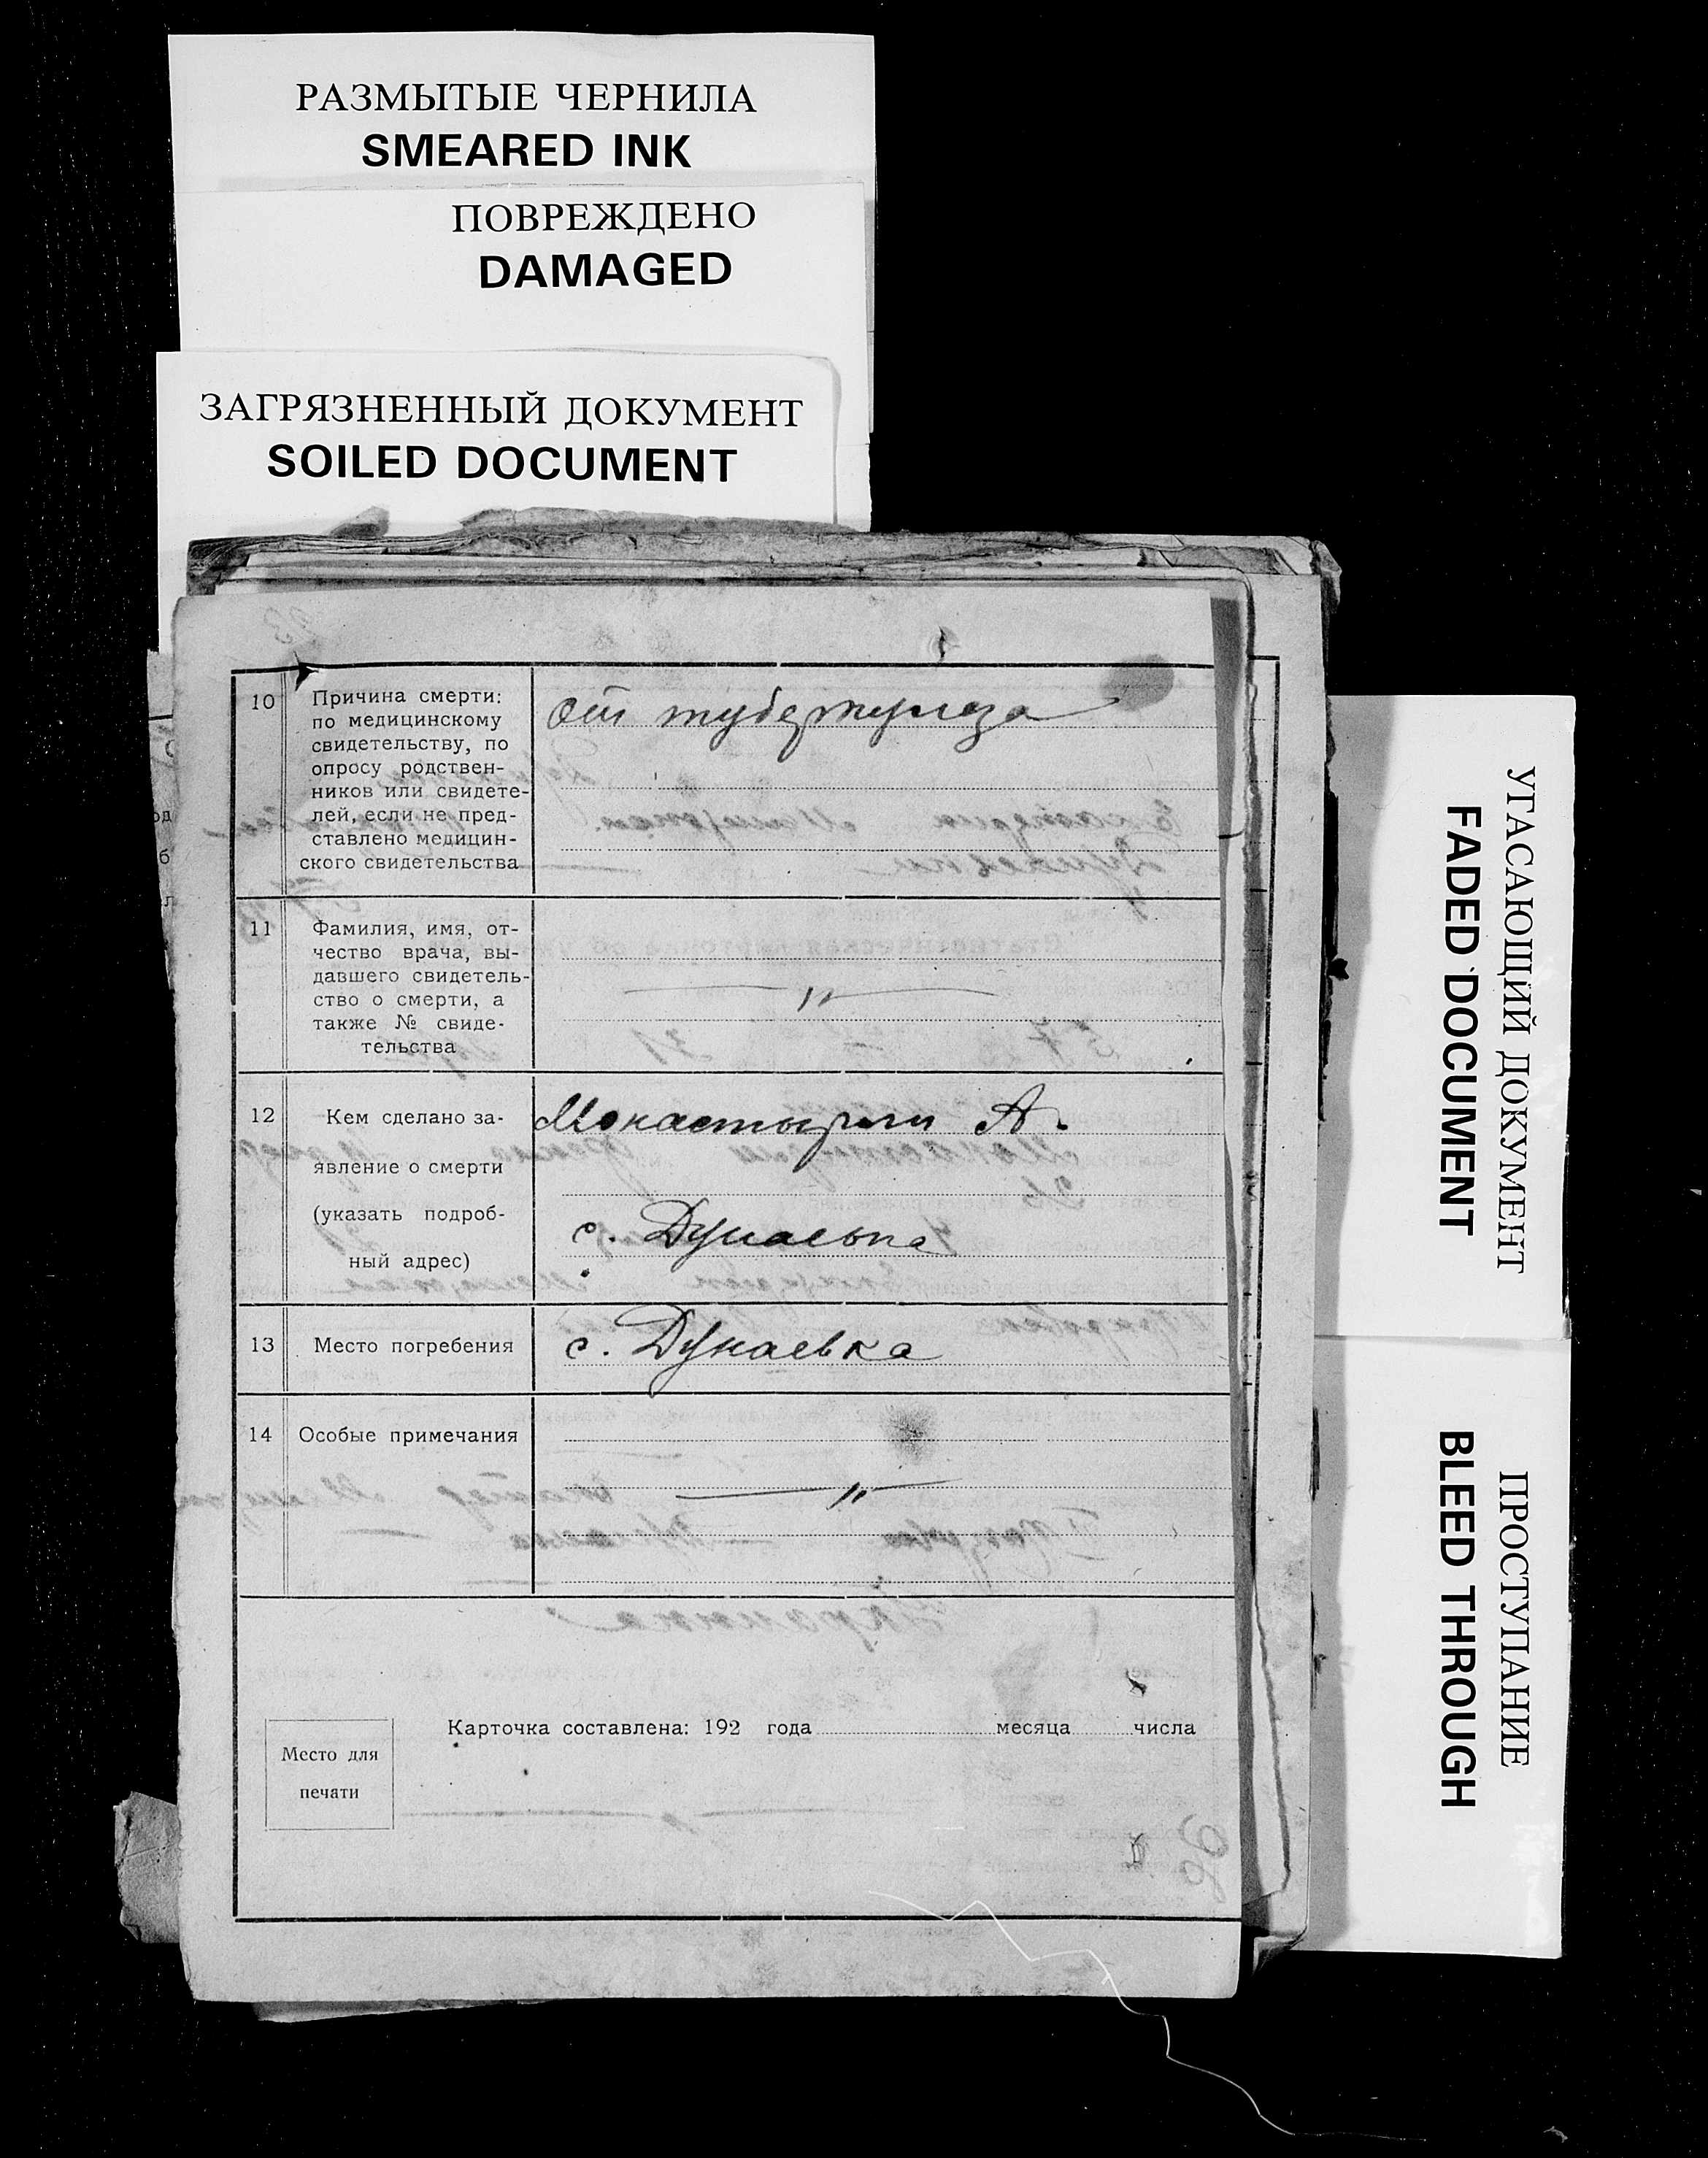 РАЗМЫТЫЕ ЧЕРНИЛА
SMEARED INK
ПОВРЕЖДЕНО
DAMAGED
ЗАГРЯЗНЕННЫЙ ДОКУМЕНТ
SOILED DOCUMENT
10
Причина смерти:
по медицинскому
свидетельству, по
опросу родствен-
ников или свидете-
лей, если не пред-
ставлено медицин-
ского свидетельства
от туберкулоза
11
Фамилия, имя, от-
чество врача, вы-
давшего свидетель-
ство о смерти, а
также № свиде-
тельства
"
12
Кем сделано за-
явление о смерти
(указать подроб-
ный адрес)
Монастырли А.
с. Дунаевка
13
Место погребения
с. Дунаевка
14
Особые примечания
"
Карточка составлена: 192 года месяца числа
Место для
печати
УГАСАЮЩИЙ ДОКУМЕНТ
FADED DOCUMENT
ПРОСТУПАНИЕ
BLEED THROUGH